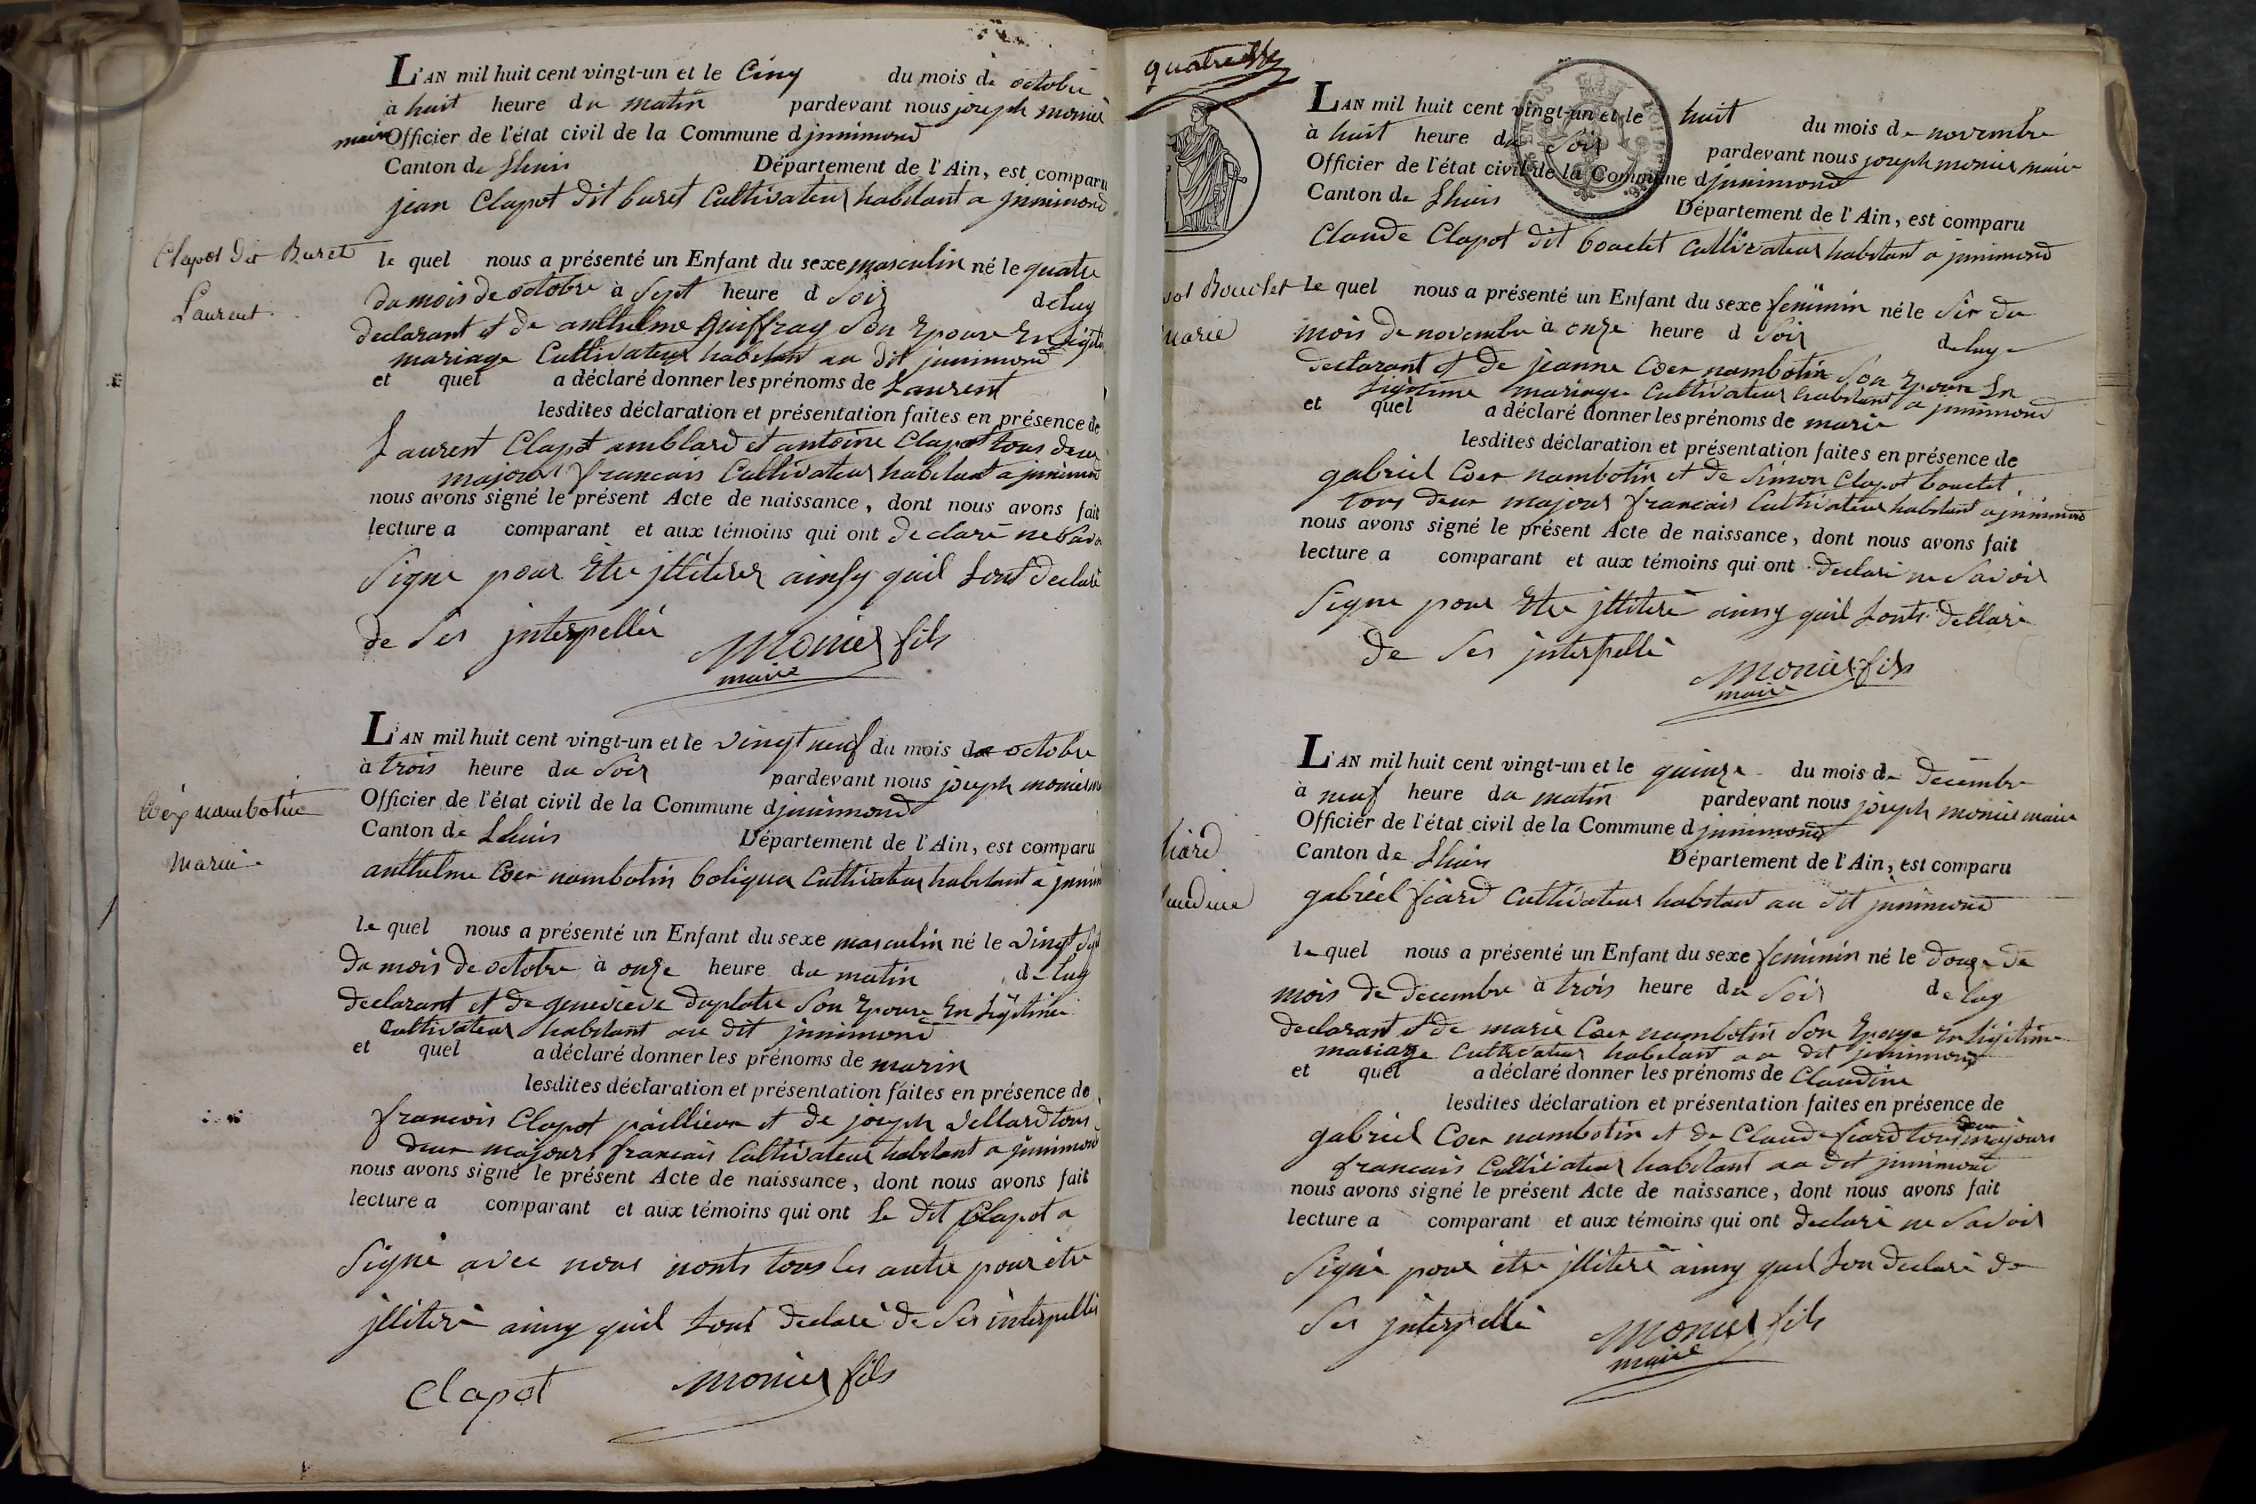 L'AN mil huit cent vingt-un et le Cinq du mois de octobre
à huit heure du matin pardevant nous joseph monier
maire Officier de l'état civil de la Commune d jnnimond
Canton de Lhuis Département de l'Ain, est comparu
jean Clapot dit buret Cultivateur habitant a jnnimond
Clapot dit Buret
Laurent
le quel nous a présenté un Enfant du sexe masculin né le quatre
du mois de octobre à Sept heure d Soir de luy
declarant et de anthelme Guiffray Son Epouse En
mariage Cultivateur habitant au dit jnnimond
et quel a déclaré donner les prénoms de Laurent
lesdites déclaration et présentation faites en présence de
Laurent Clapot amblard et antoine Clapot tous deux
majours francais Cultivateur habitant a jnnimond
nous avons signé le présent Acte de naissance, dont nous avons fait
lecture a comparant et aux témoins qui ont declaré ne
Signe pour Etre jlliterer ainsy quil sont declaré
de Ses jnterpellér
Monier fils
maire
L'AN mil huit cent vingt-un et le vingt neuf du mois de octobre
à trois heure du Soir pardevant nous joseph monier
Officier de l'état civil de la Commune d jnnimond
Canton de Lhuis Département de l'Ain, est comparu
anthelme Coer nambotin boliqua Cultivateur habitant a
Coer nambotin
marin
le quel nous a présenté un Enfant du sexe masculin né le vingt Sept
du mois de octobre à onze heure du matin de luy
declarant et de genevieve duplatre Son Epouse En Ligitime
Cultivateur habitant au dit jnnimond
et quel a déclaré donner les prénoms de marin
lesdites déclaration et présentation faites en présence de
francois Clapot et de joseph vellard tous
deux majours francais Cultivateur habitant a jnnimond
nous avons signé le présent Acte de naissance, dont nous avons fait
lecture a comparant et aux témoins qui ont Le dit Clapot a
Signé avec nous nonts tous les autre pour être
jlliteré ainsy quil sont declaré de Ses interpellé
Clapot monier fils
quatre
L'AN mil huit cent vingt-un et le huit du mois de novembre
à huit heure du Soir pardevant nous joseph monier maire
Officier de l'état civil de la Commune d jnnimond
Canton de Lhuis Département de l'Ain, est comparu
Claude Clapot dit bouclet Cultivateur habitant a jnnimond
Bouclet
marie
le quel nous a présenté un Enfant du sexe feminin né le Six du
mois de novembre à onze heure d Soir de luy
declarant et de jeanne Coer nambotin Son Epouse En
Ligitime mariage Cultivateur habitant a jnnimond
et quel a déclaré donner les prénoms de marie
lesdites déclaration et présentation faites en présence de
gabriel Coer nambotin et de Simon Clapot bouclet
tous deux majours francais Cultivateur habitant a jnnimond
nous avons signé le présent Acte de naissance, dont nous avons fait
lecture a comparant et aux témoins qui ont declaré ne Savoir
Signe pour Etre jlliteré ainsy quil sonts declaré
de Ses jnterpellé
Monier fils
maire
L'AN mil huit cent vingt-un et le quinze du mois de decembre
à neuf heure du matin pardevant nous joseph monier maire
Officier de l'état civil de la Commune d jnnimond
Canton de Lhuis Département de l'Ain, est comparu
gabriel fiard Cultivateur habitant au dit jnnimond
fiard
le quel nous a présenté un Enfant du sexe feminin né le douze de
mois de decembre à trois heure du Soir de luy
declarant et de marie Coer nambotin Son Epouse En Ligitime
mariage Cultivateur habitant au dit jnnimond
et quel a déclaré donner les prénoms de Claudine
lesdites déclaration et présentation faites en présence de
gabriel Coer nambotin et de Claude fiard tous deux majours
francais Cultivateur habitant au dit jnnimond
nous avons signé le présent Acte de naissance, dont nous avons fait
lecture a comparant et aux témoins qui ont declaré ne Savoir
Signé pour être jlliteré ainsy quil son declaré de
Ses jnterpellé
Monier fils
maire